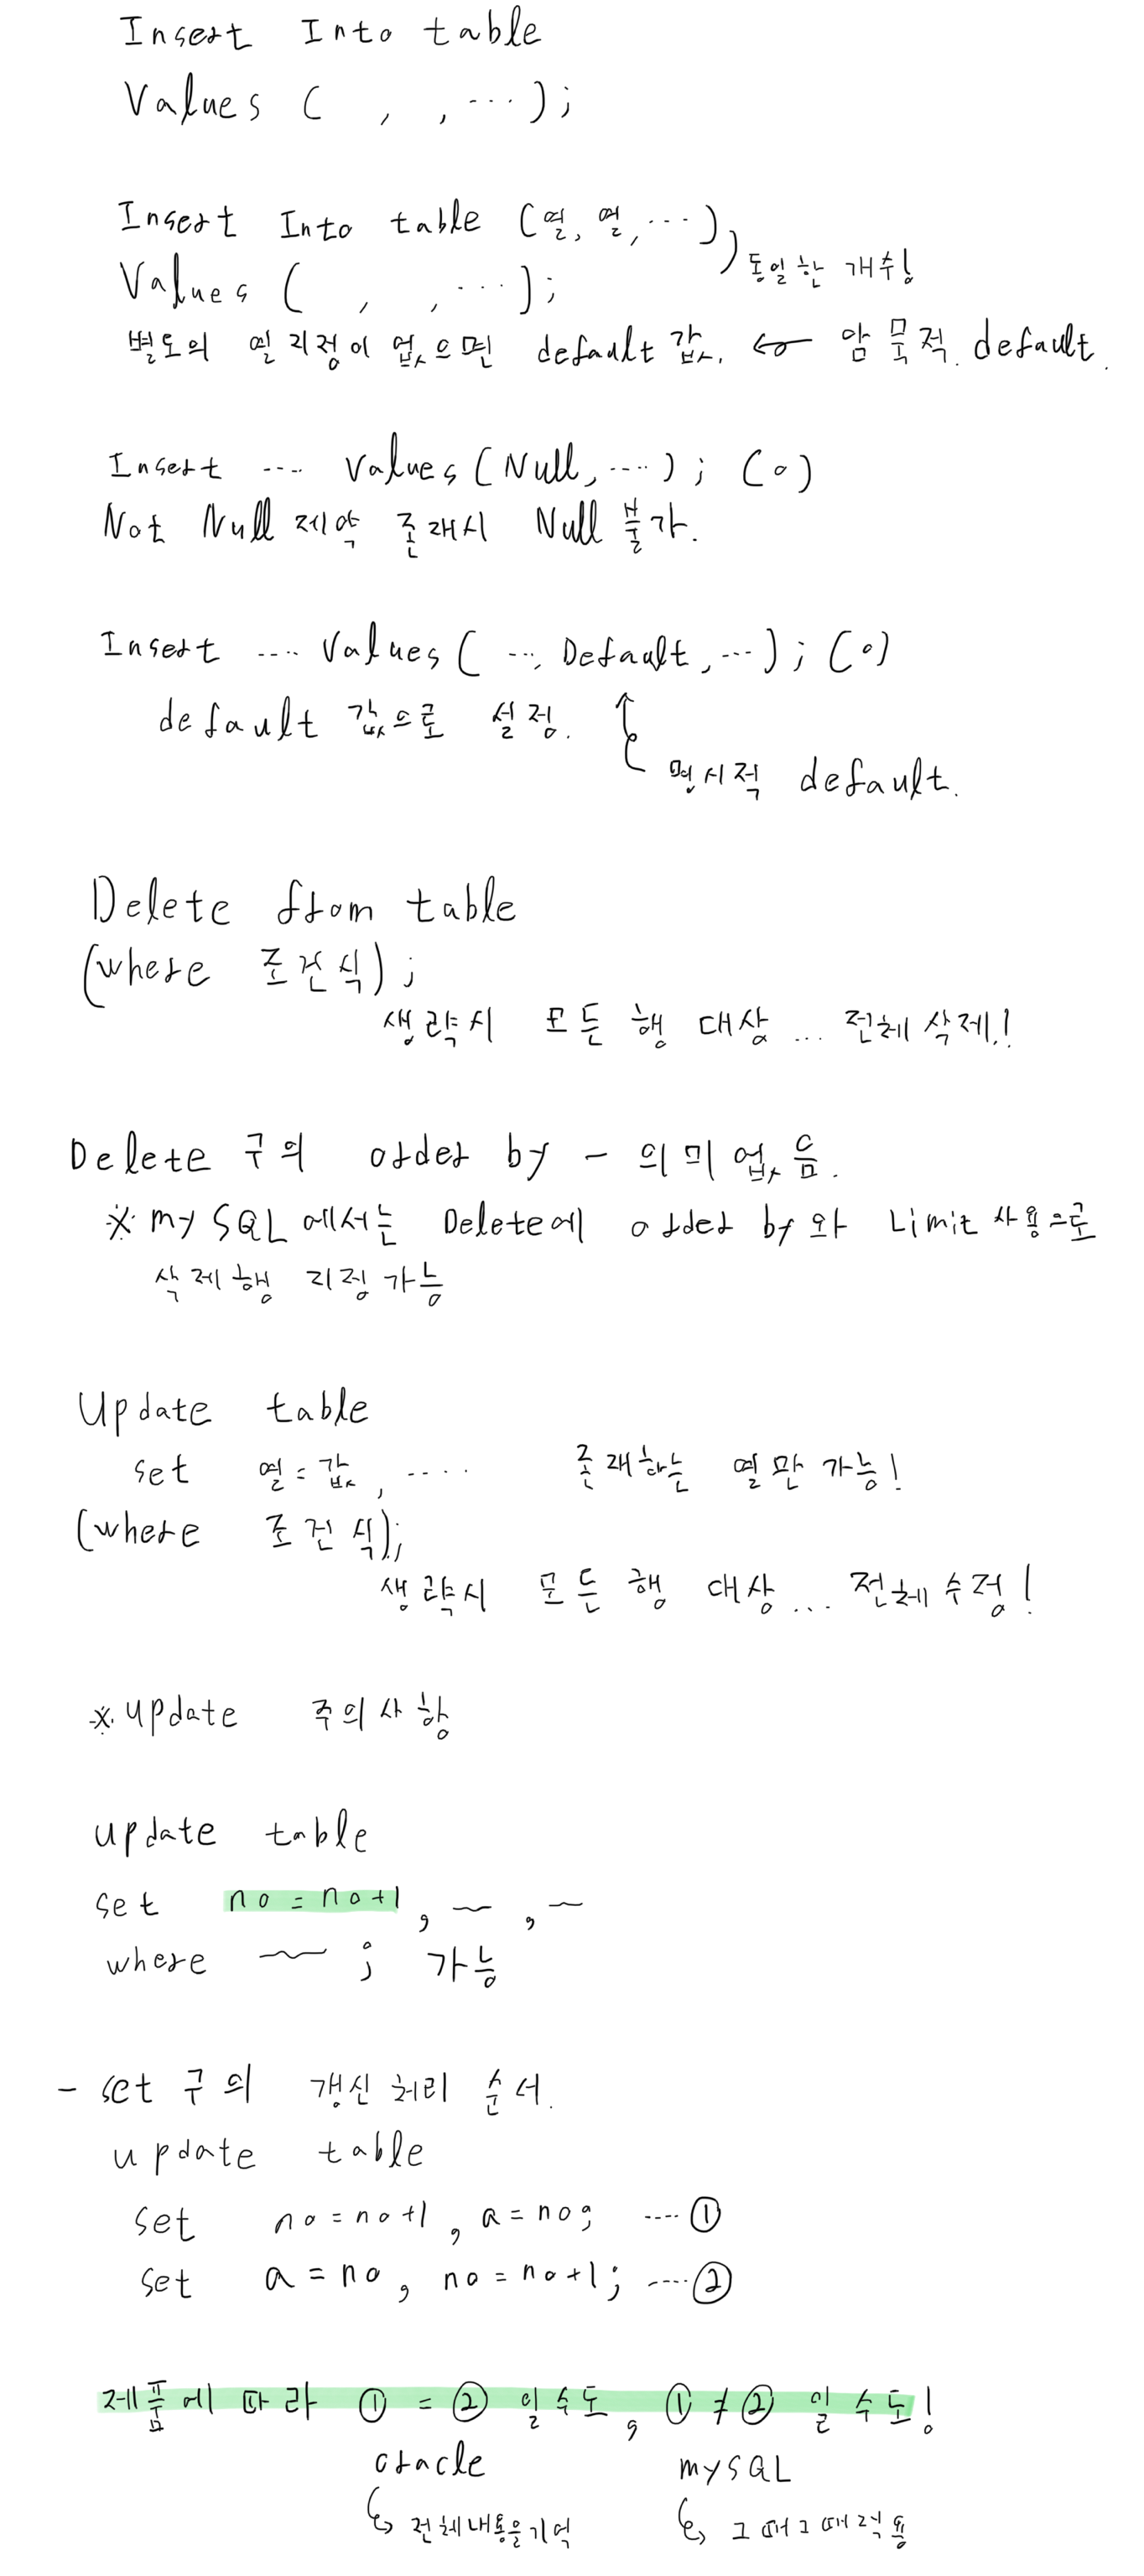 Insert Into table
Values ( , , ...);
Insert Into table (열, 열, ...)
Values ( , , ...);
동일한 개수!
별도의 열 지정이 없으면 default 값. ← 암묵적 default.
Insert .... Values (Null, ....) ; (o)
Not Null 제약 존재시 Null 불가.
Insert .... Values ( ..., Default, ...) ; (o)
default 값으로 설정.
명시적 default.
Delete from table
(where 조건식) ;
생략시 모든 행 대상 ... 전체 삭제.!
Delete 구의 order by - 의미 없음.
※ my SQL 에서는 Delete에 order by 와 Limit 사용으로
삭제행 지정 가능
Update table
set 열 = 값 , ....
존재하는 열만 가능!
(where 조건식);
생략시 모든 행 대상 ... 전체 수정!
※ update 주의사항
update table
set no = no+1 , ~ , ~
where ~ ; 가능
- set 구의 갱신처리 순서.
update table
set no = no+1 , a = no; .... ①
set a = no , no = no+1 ; .... ②
제품에 따라 ① = ② 일수도 , ① ≠ ② 일 수도!
oracle mySQL
↳ 전체내용을 기억 ↳ 그때그때 적용